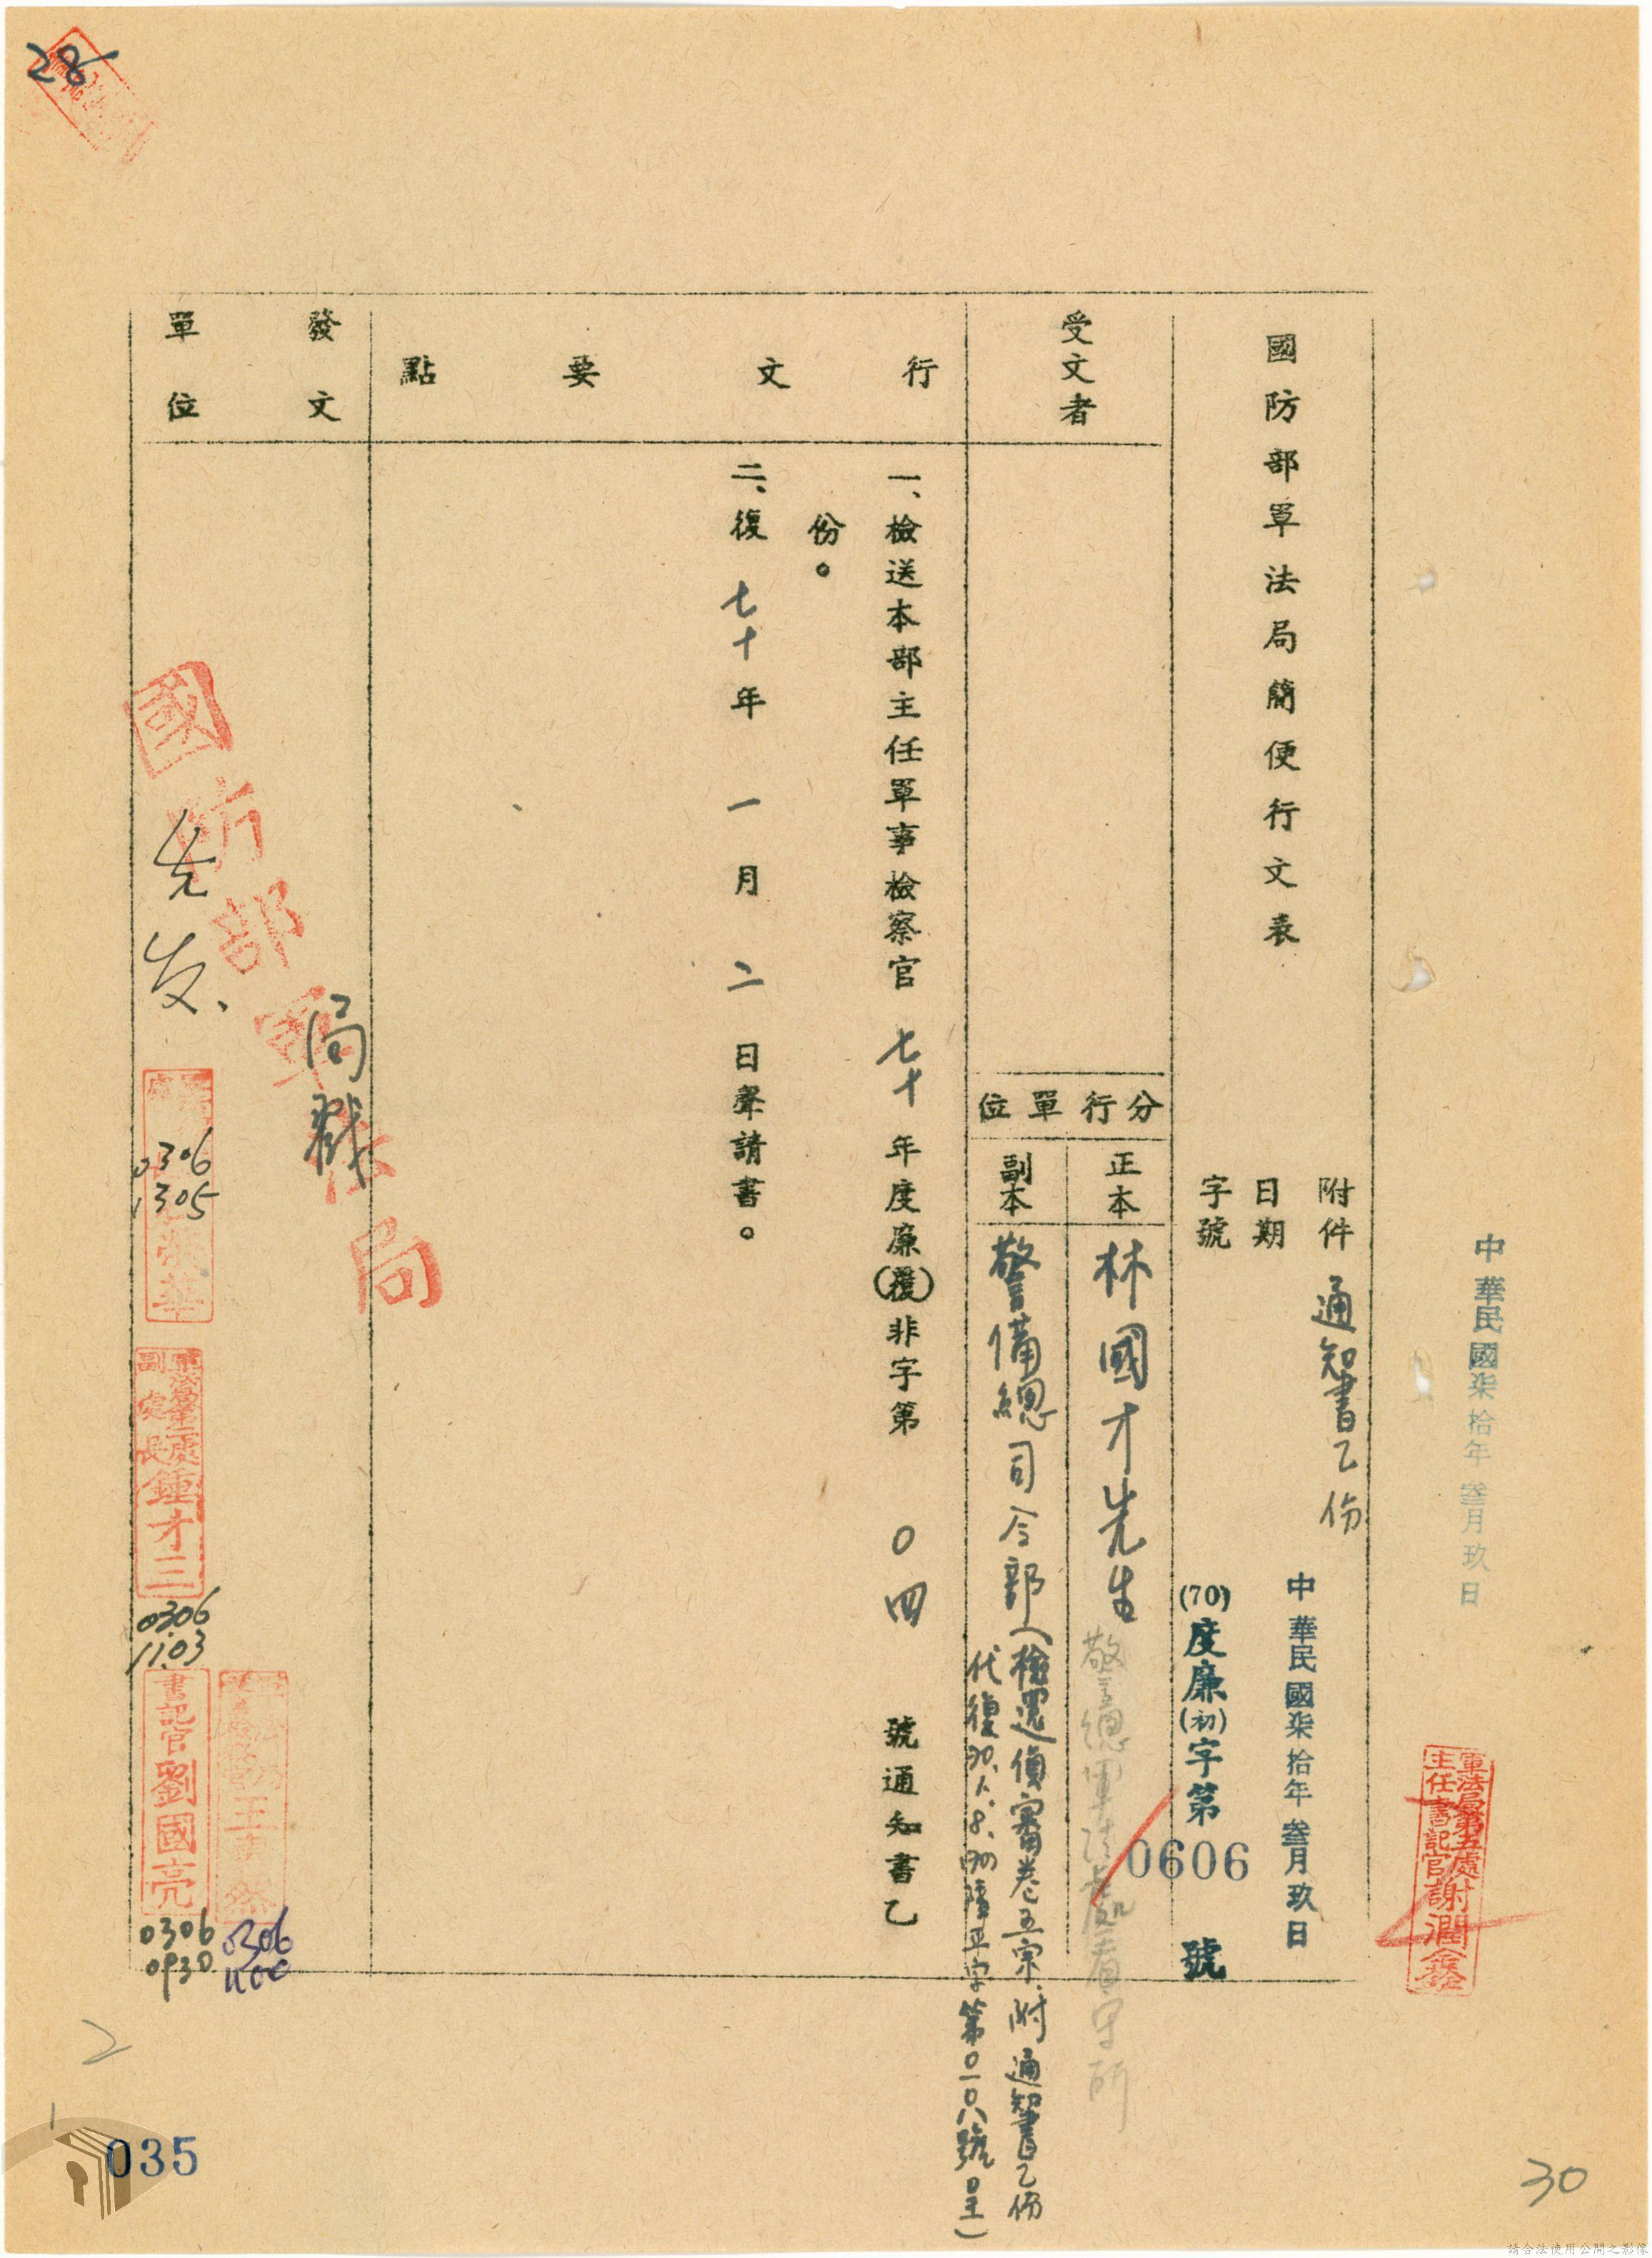 28
中華民國柒拾年叁月玖日
軍法局第五處
主任書記官謝潤鑫
國防部軍法局簡便行文表
附件 通知書乙份
日期 中華民國柒拾年叁月玖日
字號 (70)度廉(初)字第0606號
受文者
分行單位
正本 林國才先生
警總軍法處看守所
副本 警備總司令部(檢還偵審卷五宗.附通知書乙份
代復70.1.8.
字第0一0八號呈)
行文要點
一、檢送本部主任軍事檢察官七十年度廉(覆)非字第0四號通知書乙
份。
二、復七十年一月二日聲請書。
發文單位
國防部軍法局
局戳
先发、
0306
1305
軍法局第二處
副處長鍾才三
0306
11.03
書記官劉國亮
0306
0930
0306
1100
2
1
035
30
請合法使用公開之影像